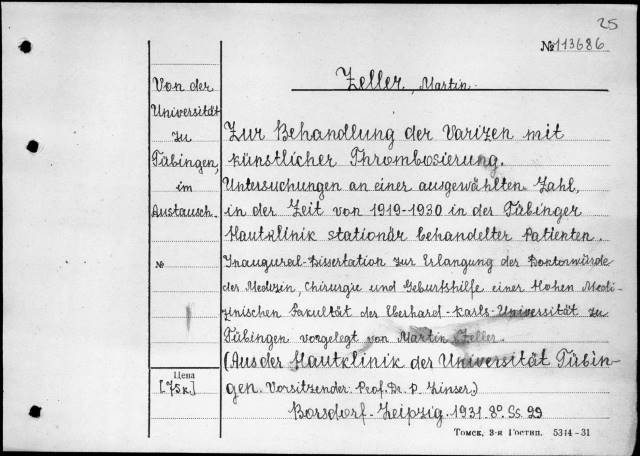 25
№113686
Zeller, Martin.
Von der
Universität
zu
Tübingen,
im
Austausch.
Zur Behandlung der Varizen mit
künstlicher Thrombosierung.
Untersuchungen an einer ausgewählten Zahl,
in der Zeit von 1919-1930 in der Tübinger
Hautklinik stationär behandelter Patienten.
№
Inaugural-Dissertation zur Erlangung der Doktorwürde
der Medizin, Chirurgie und Geburtshilfe einer Hohen Medi-
zinischen Fakultät der Eberhard-Karls-Universität zu
Tübingen vorgelegt von Martin Zeller.
(Aus der Hautklinik der Universität Tübin-
gen. Vorsitzender: Prof. Dr. P. Linser.)
Borsdorf-Leipzig. 1931. 8º. Ss. 29
Цена
[75к.]
Томск, 3-я Гостип. 5314-31